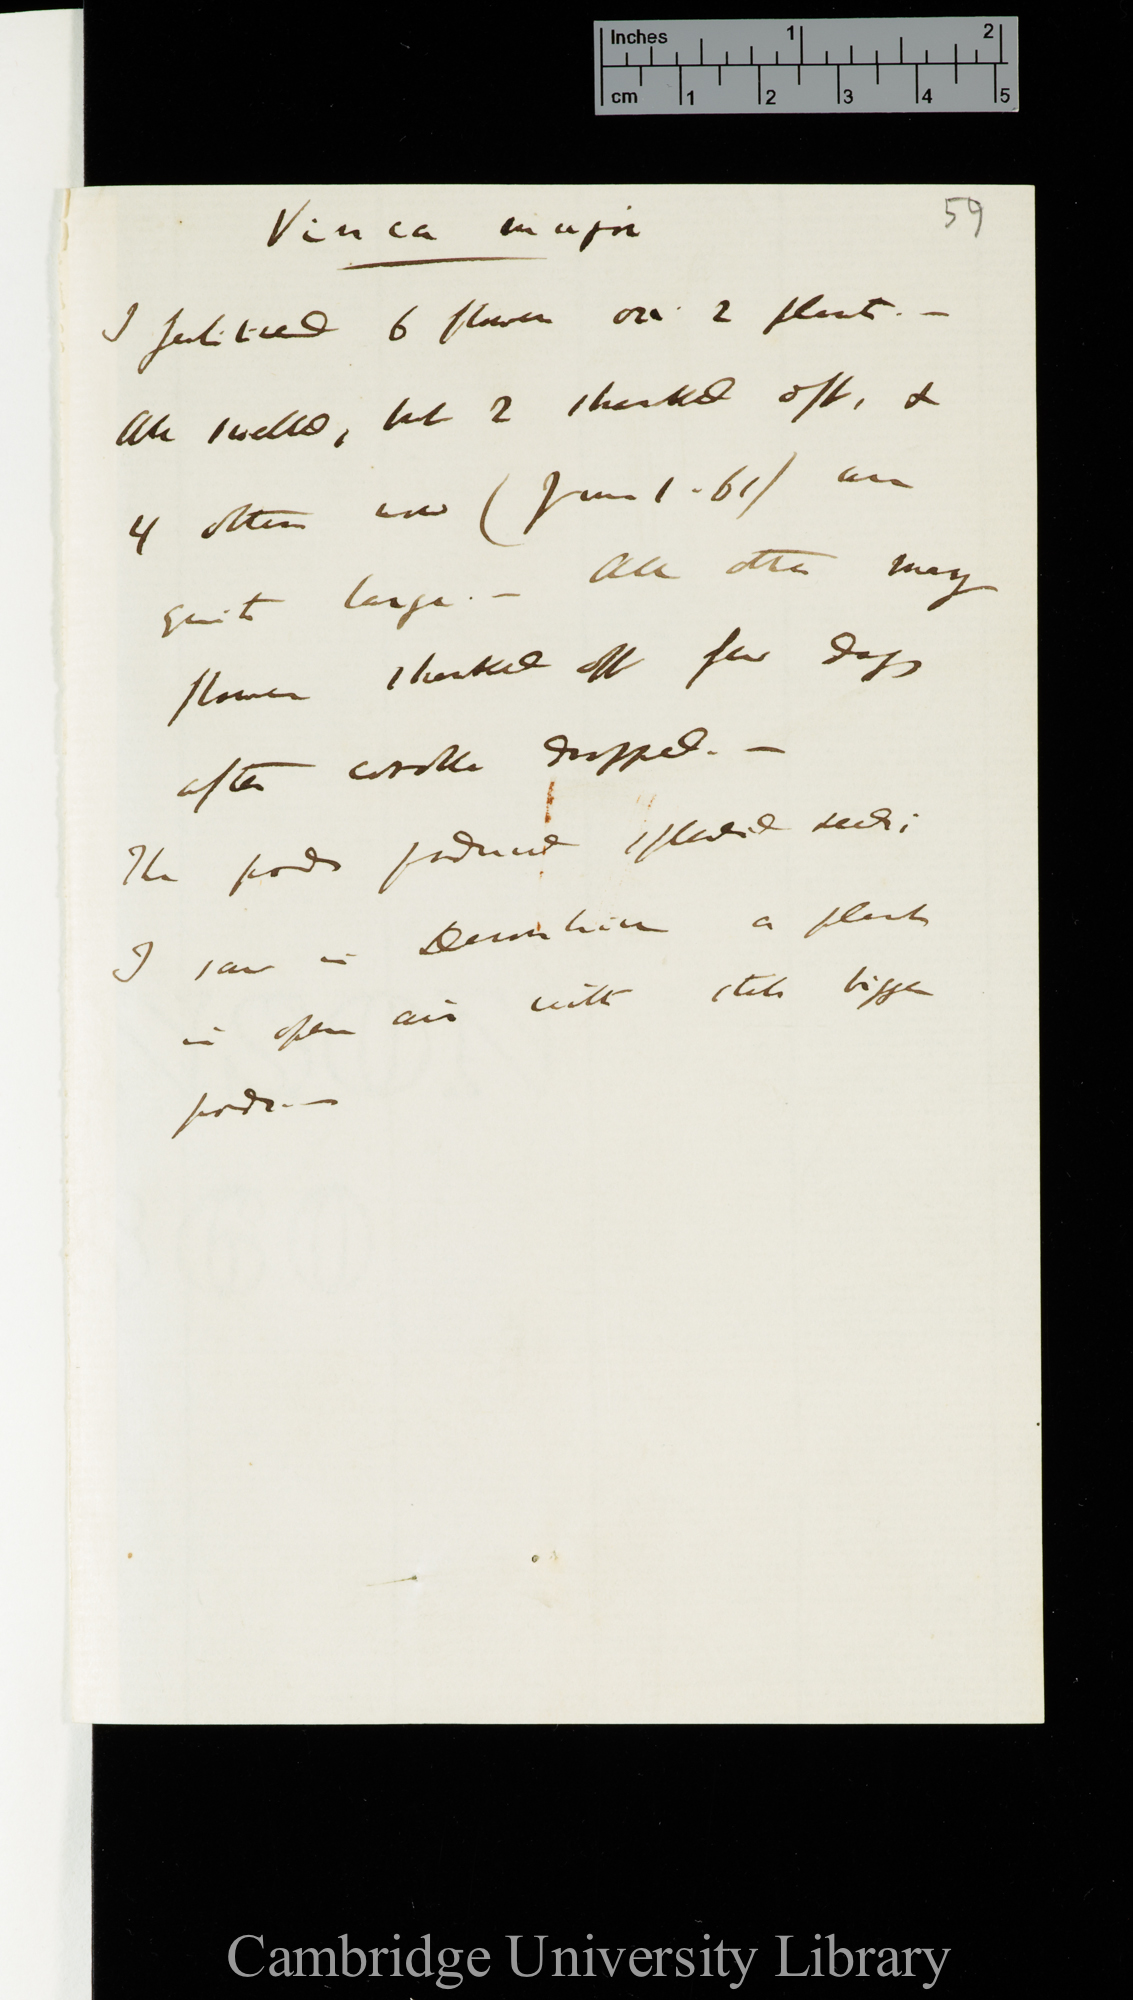 Inches 1 2
cm 1 2 3 4 5
59
Vinca major
I fertilised 6 flowers on 2 plants. —
All swelled, but 2 shanked off, &
4 others now (June 1 - 61) are
quite large. — All other many
flowers shanked off few days
after corolla dropped. —
The pods produced splendid seeds;
I saw in Devonshire a plant
in open air with still bigger
pods. —
Cambridge University Library